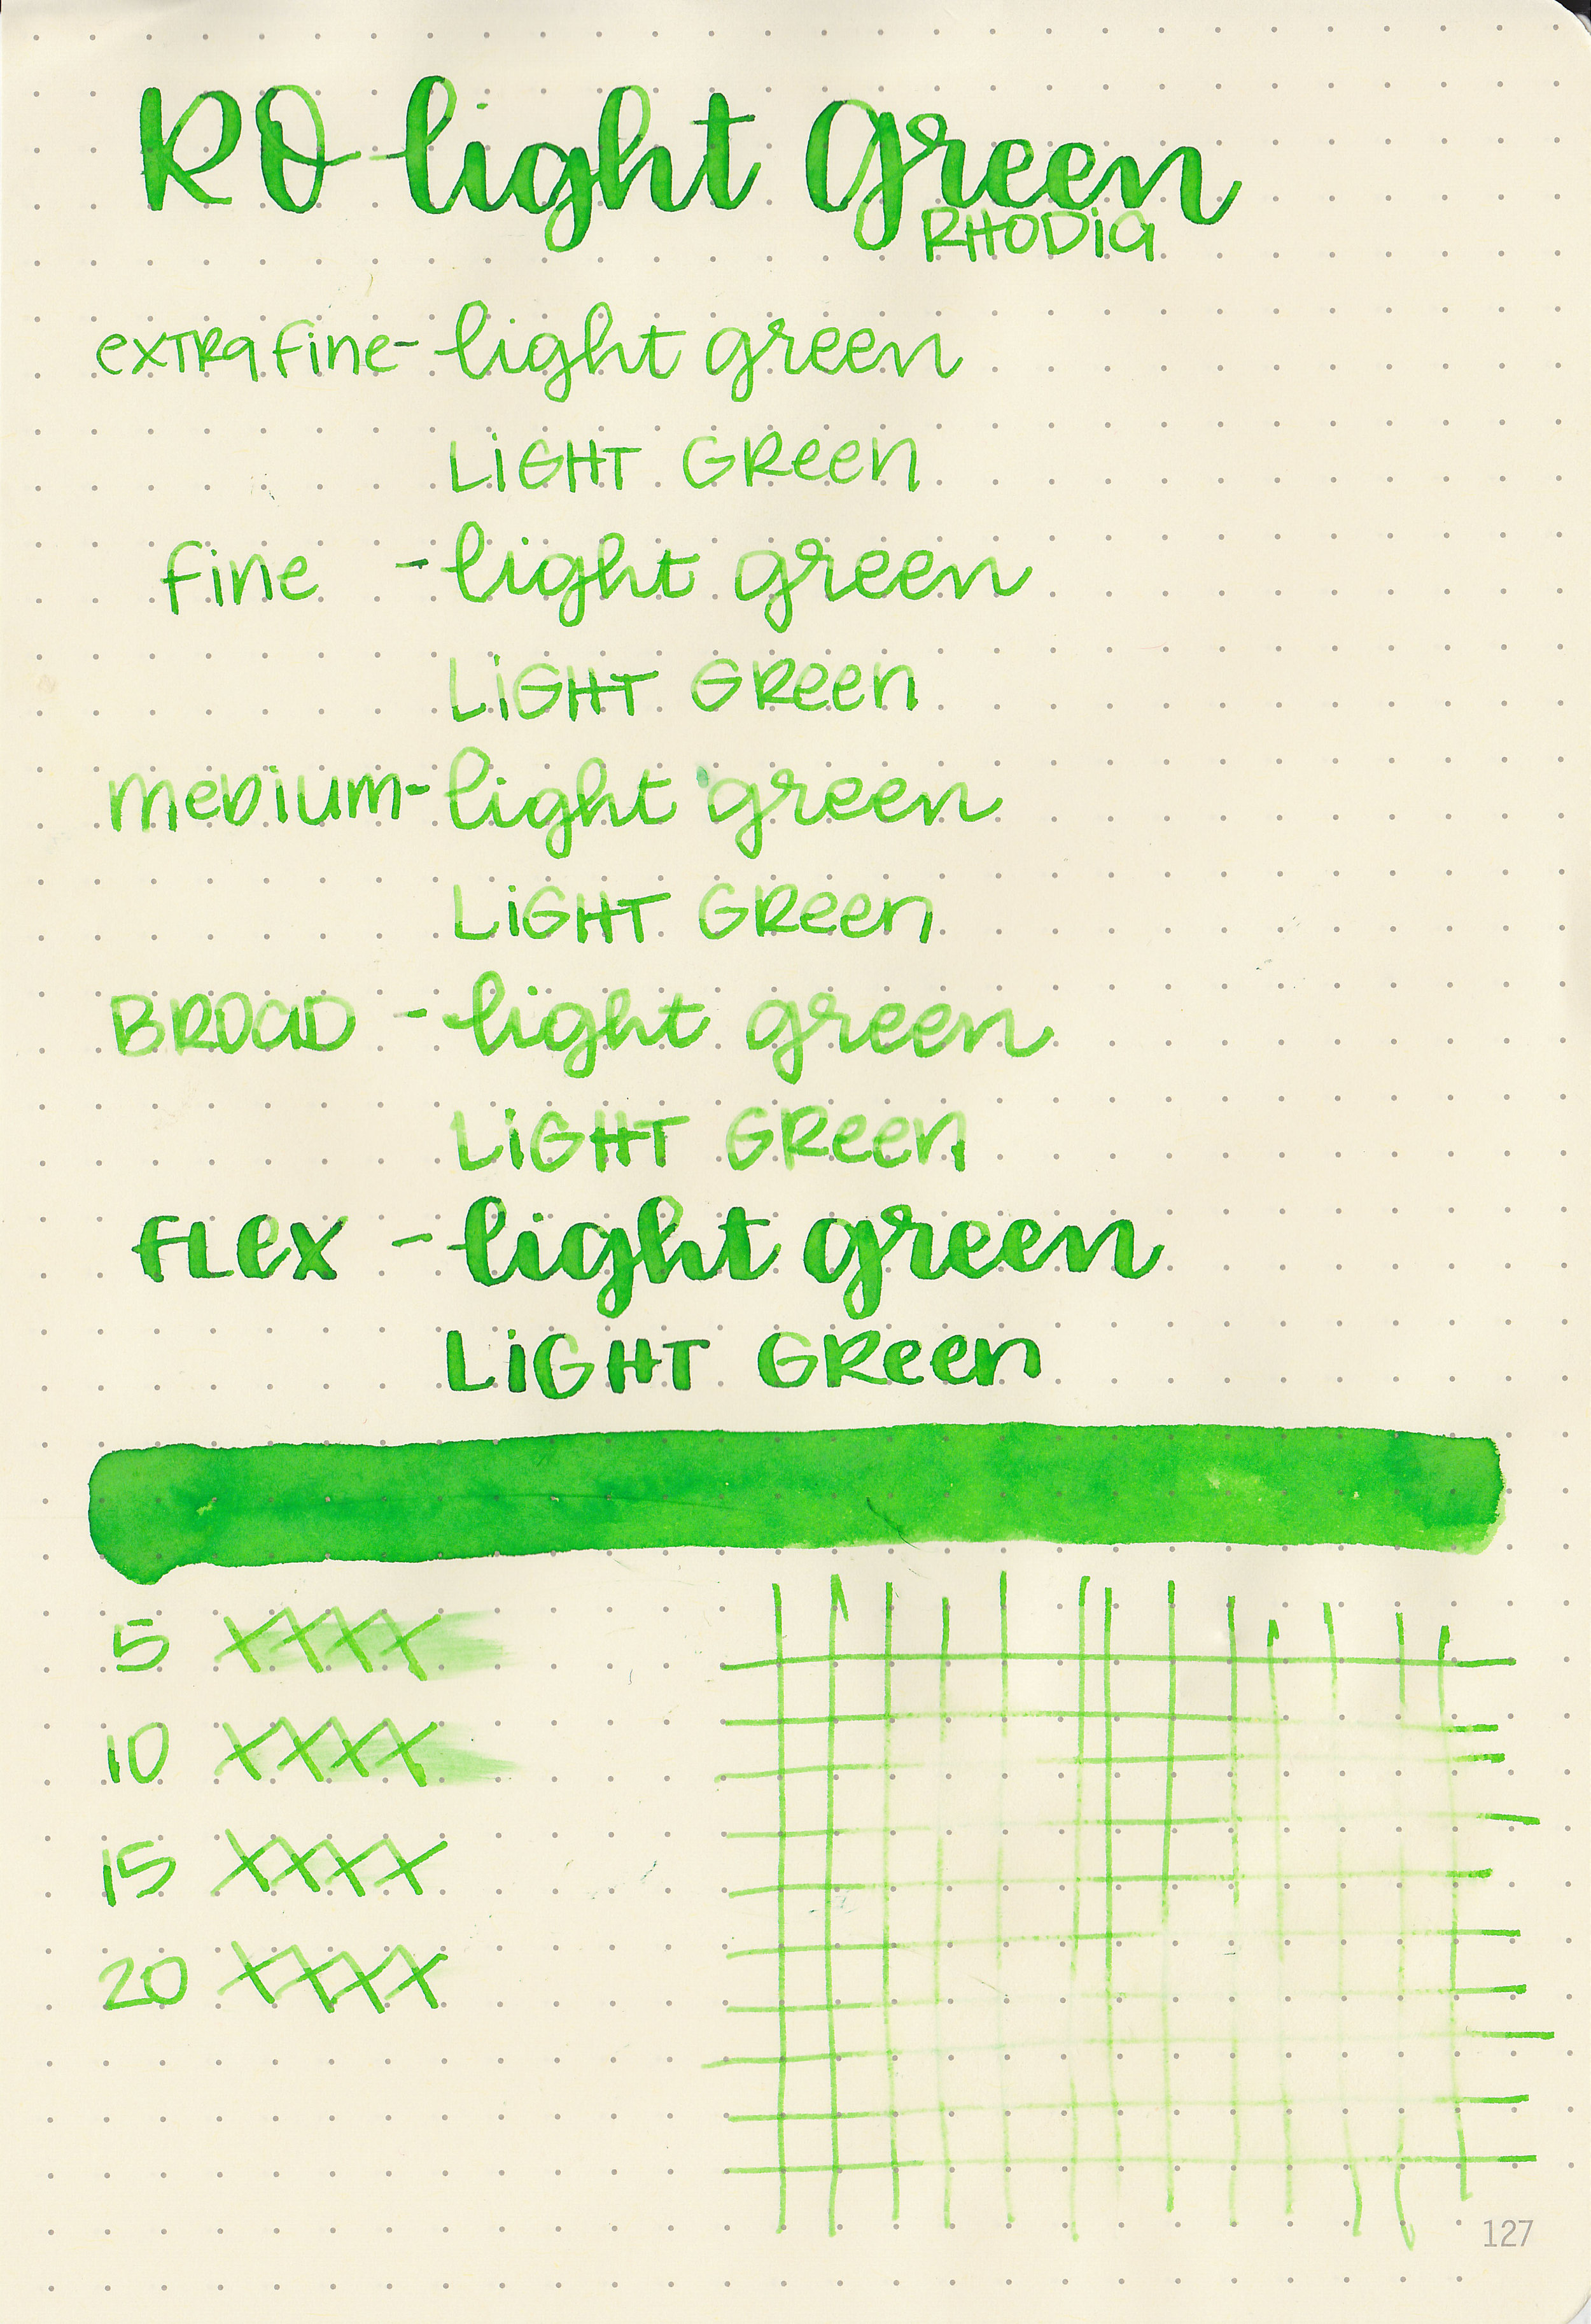 RO-light Green
RHODia
exTRa fine- light green
LiGHT GReen
fine - light green
LiGHT GReen
meDium- light green
LiGHT GReen
BROaD - light green
LiGHT GReen
FLex - light green
LiGHT GReen
5 XXXX
10 XXXX
15 XXXX
20 XXXX
127